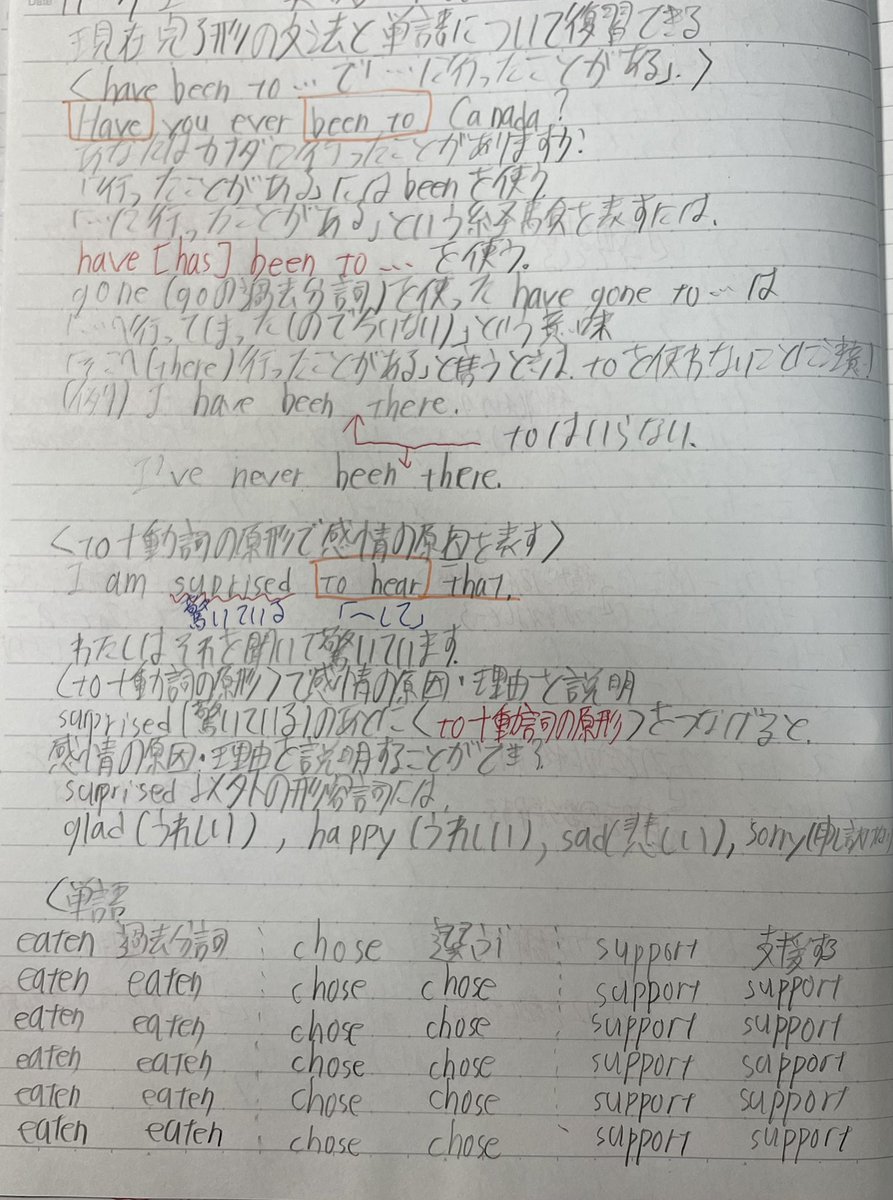 現在完了形の文法と単語について復習できる
〈have been to … で「…に行ったことがある」.〉
Have you ever been to Canada?
あなたはカナダに行ったことがありますか?
「行ったことがある」には been を使う
「…に行ったことがある」という経験を表すには,
have [has] been to … を使う.
gone (goの過去分詞)を使った have gone to … は
「…へ行ってしまった(のでいない)」という意味
「そこへ(there)行ったことがある」と言うときは, toを使わないことに注意!
(例) I have been there.
toはいらない.
I've never been there.
〈to+動詞の原形で感情の原因を表す〉
I am suprised to hear that.
驚いている 「〜して」
わたしはそれを聞いて驚いています.
〈to+動詞の原形〉で感情の原因・理由を説明
surprised(驚いている)のあとに〈to+動詞の原形〉をつなげると,
感情の原因・理由を説明することができる
surprised 以外の形容詞には,
glad(うれしい), happy(うれしい), sad(悲しい), sorry
〈単語
eaten 過去分詞 : chose 選ぶ : support 支援する
eaten eaten : chose chose : support support
eaten eaten : chose chose : support support
eaten eaten : chose chose : support support
eaten eaten : chose chose : support support
eaten eaten : chose chose : support support